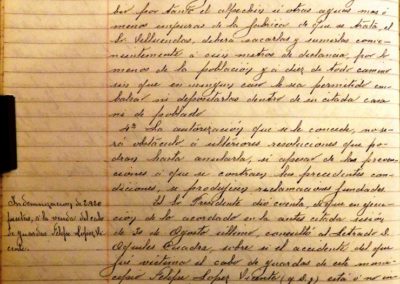 ber por tanto el alpechin ú otras aguas mas ó
menos impuras de la fabrica de que se trata, el
Sr. Vellucendas, deberá sacarlas y sumirlas conve-
nientemente á cien metros de distancia por lo
menos de la población y á diez de todo camino
sin que en ningun caso le sea permitido em-
balsar ni depositarlas dentro de su citada casa
ni de poblado
4ª La autorización que se le concede, no se-
rá obstáculo á ulteriores resoluciones que po-
dran hasta anularla, si apesar de las preven-
ciones á que se contraen las precedentes con-
diciones, se produjesen reclamaciones fundadas.
El Sr. Presidente dio cuenta, de que en ejecu-
ción de lo acordado en la antes citada sesion
de 30 de Agosto último, consultó al letrado D.
Aquiles Cuadra, sobre si el accidente del que
fué victima el cabo de guardas de este muni-
cipio Felipe Lopez Vicente (q.D.g.) está ó no in-
Indemnizacion de 2920
pesetas, á la viuda del cabo
de guardas Felipe Lopez Vi-
cente.